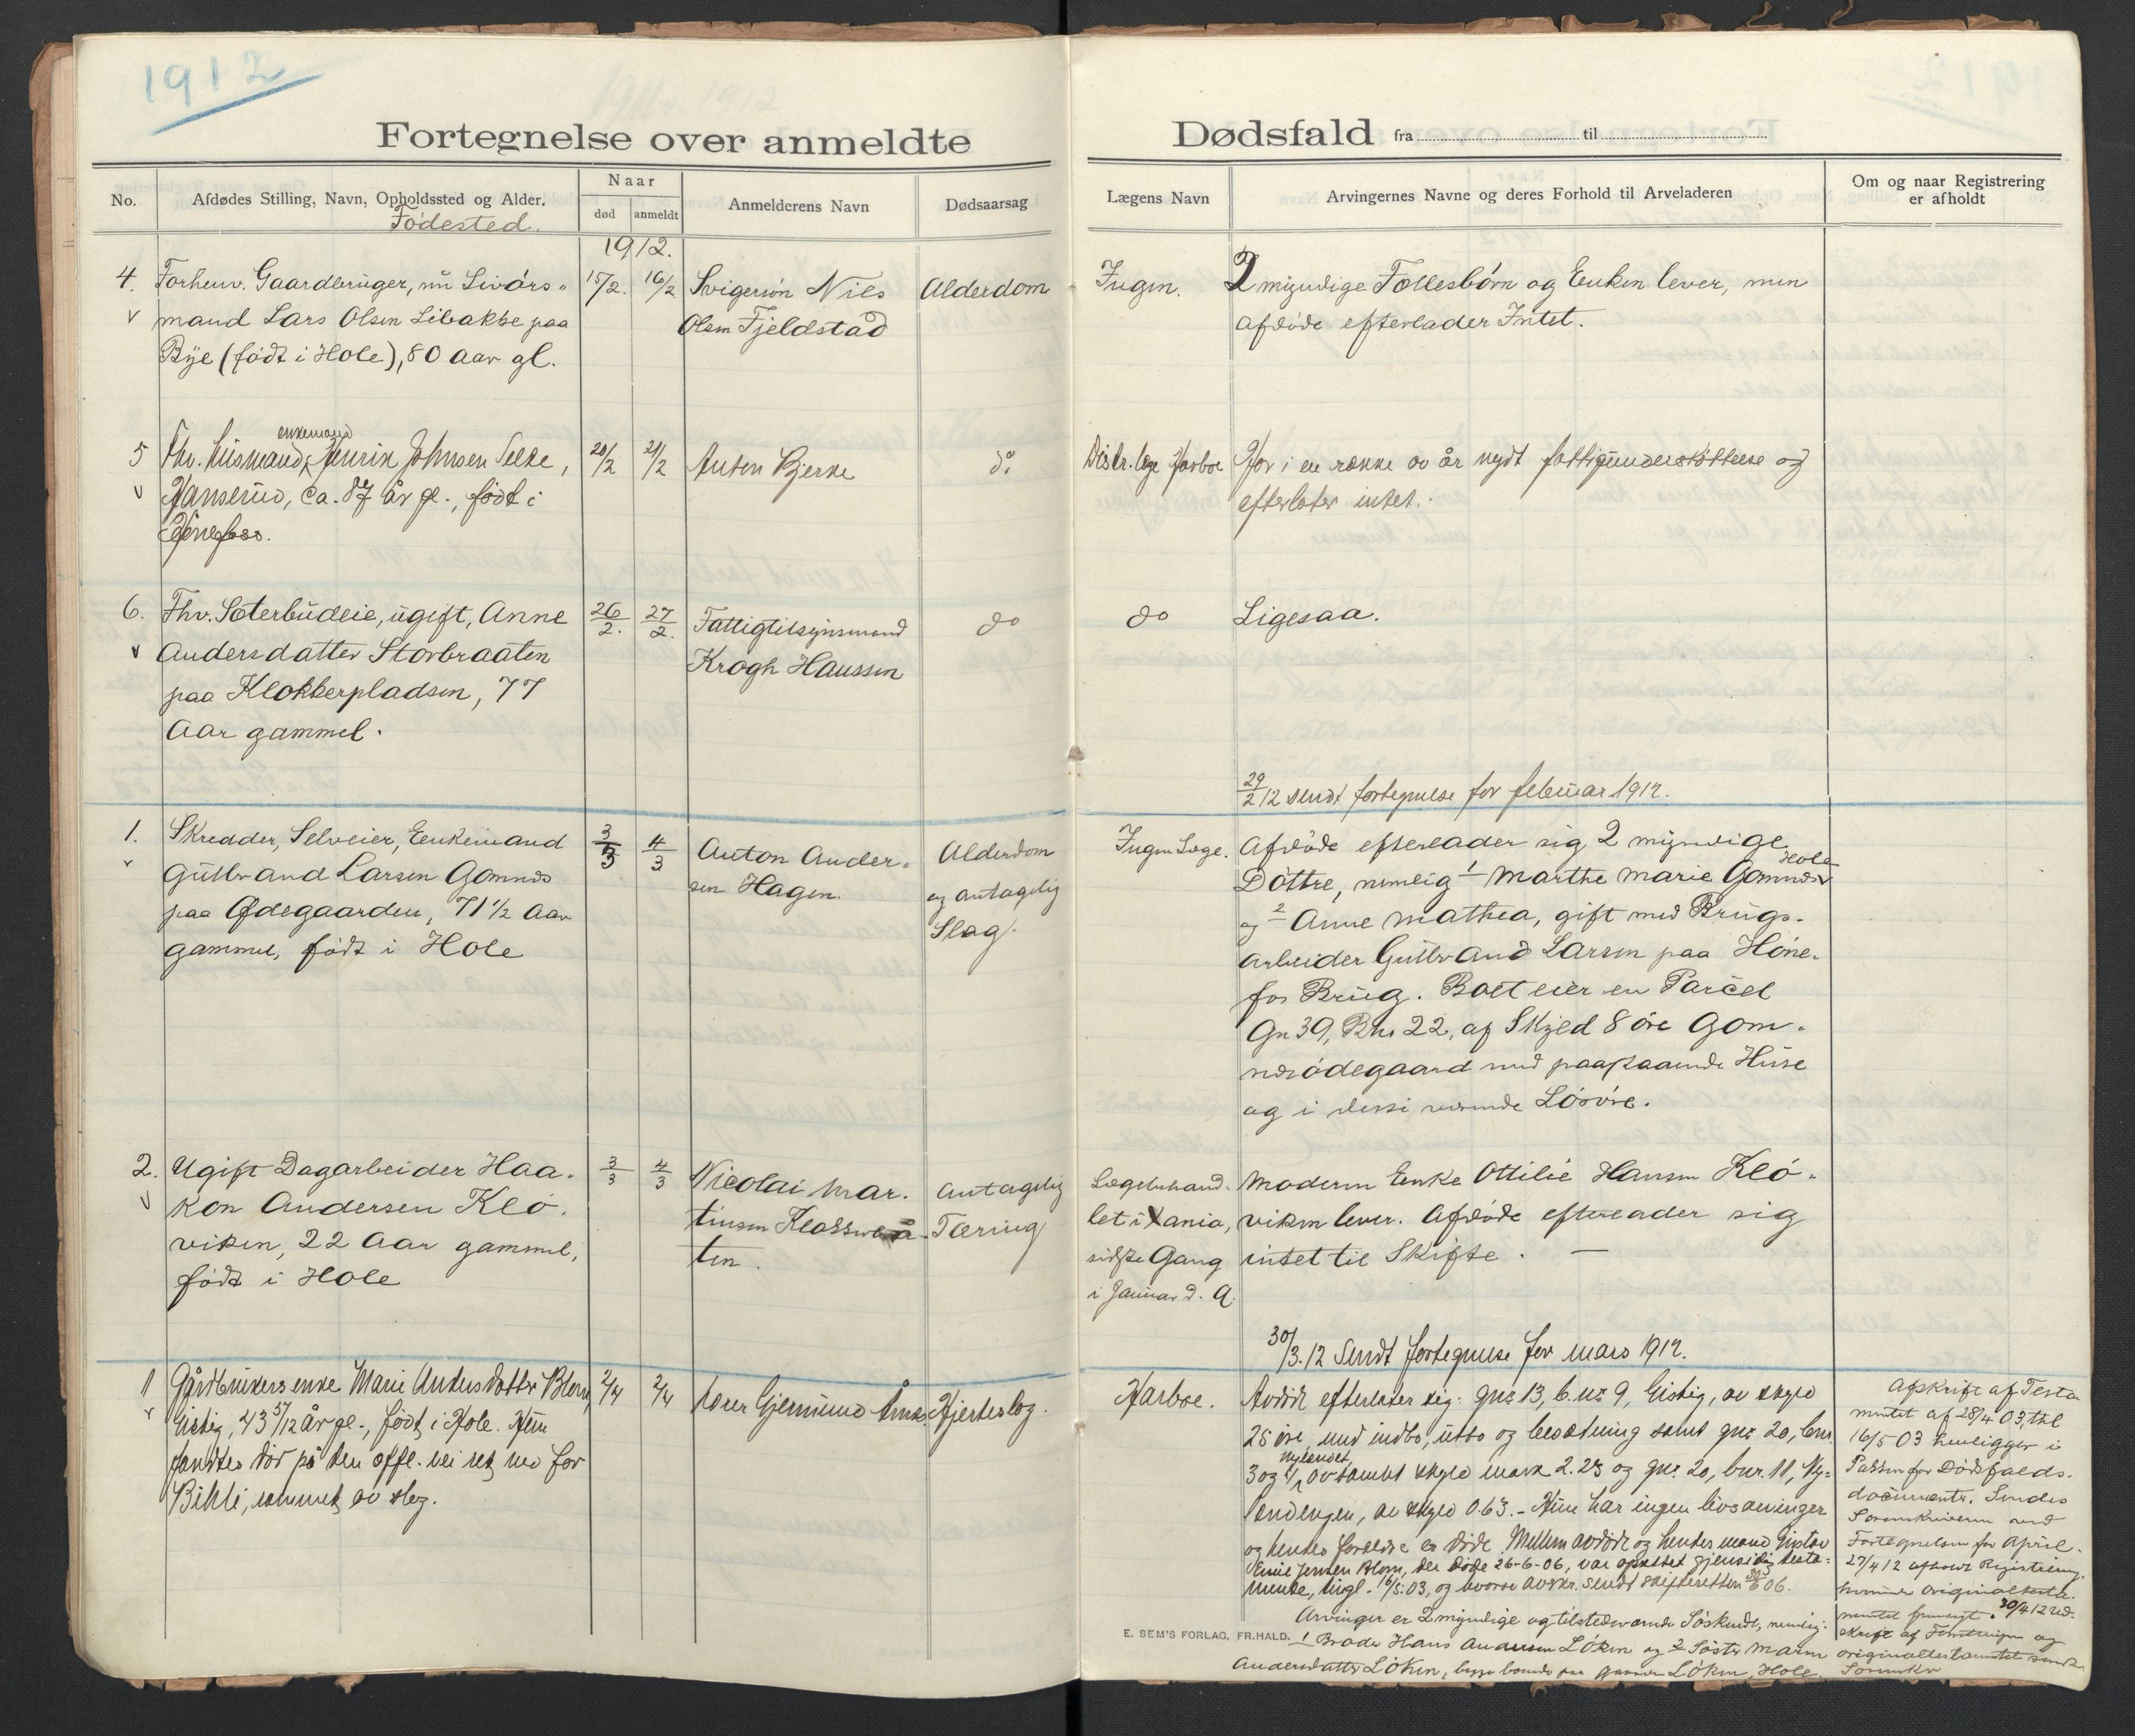 1912
Fortegnelse over anmeldte Dødsfald fra til
No.
Afdødes Stilling, Navn, Opholdssted og Alder.
Fødested.
Naar
død
anmeldt
Anmelderens Navn
Dødsaarsag
Lægens Navn
Arvingernes Navne og deres Forhold til Arveladeren
Om og naar Registrering
er afholdt
1912.
4.
Forhenv. Gaardbruger, nu Livørs-
mand Lars Olsen Libakke paa
Bye (født i Hole), 80 Aar gl.
15/2.
16/2
Svigersøn Nils
Olsen Fjeldstad
Alderdom
Ingen.
2 myndige Fællesbørn og Enken lever, men
afdøde efterlader Intet.
5
enkemand
Fhv. husmand, Henrik Johnsen
Hanserud, ca. 87 år gl., født i
Hønefoss.
20/2
21/2
Anton Bjerke
do
Distr.læge Harboe
Har i en række av år nydt fattigunderstøttelse og
efterlater intet.
6.
Fhv. Sæterbudeie, ugift, Anne
Andersdatter Storbraaten
paa Klokkerpladsen, 77
Aar gammel.
26/2.
27/2.
Fattigtilsynsmand
Krogh Hanssen
do
do
Ligesaa.
29/2 12 sendt fortegnelse for februar 1912.
1.
Skrædder, Selveier, Enkemand
Gulbrand Larsen Gomnæs
paa Ødegaarden, 71 1/2 Aar
gammel, født i Hole
3/3
4/3
Anton Ander-
sen Hagen.
Alderdom
og antagelig
Slag.
Ingen Læge.
Afdøde efterlader sig 2 myndige
Døttre, nemlig 1 Marthe Marie Gomnæs Hole
og 2 Anne Mathea, gift med Brugs-
arbeider Gulbrand Larsen paa Høne-
fos Brug. Boet eier en Parcel
Gn 39, Bns 22, af Skyld 8 øre Gom-
næsødegaard med paastaaende Huse
og i disse værende Løsøre.
2.
Ugift Dagarbeider Haa-
kon Andersen Klø-
viken, 22 Aar gammel,
født i Hole
3/3
4/3
Nicolai Mar-
tinsen
ten.
Antagelig
Tæring
Lægebehand-
let i Xania,
sidste Gang
i Januar d. A.
Moderen Enke Ottilie Hansen Klø-
viken lever. Afdøde efterlader sig
intet til Skifte. —
30/3.12 Sendt fortegnelse for mars 1912.
1
Gårdbrukers enke Marie Andersdatter Blom,
Gistig, 43 5/12 år gl., født i Hole. Hun
fandtes død på den offl. vei ret ned for
Bihli, rammet av slag.
2/4
2/4
Gjermund
Hjerteslag.
Harboe.
Avdøde efterlater sig: gnr 13, b.nr 9, Gistig, av skyld
25 øre, med indbo, utbo og besætning samt gnr 20, bnr.
3 og 4, Nylændet, av samlet skyld mark 2.23 og gnr. 20, bnr. 11, Ny-
lændengen, av skyld 0.63. - Hun har ingen livsarvinger
og hendes forældre er døde. Mellem avdøde og hendes mand Gustav
Emil Jensen Blom, der døde 26-6-06, var oprettet gjensidig testa-
mente, tingl. 16/5.03, og hvorav avskr. sendt skifteretten 06.
Arvinger er 2 myndige og tilstedeværende Søskende, nemlig:
1 Broder Hans Andersen Løken og 2 Søster Maren
Andersdatter Løken, begge boende paa Gaarden Løken, Hole.
Afskrift af Testa-
mentet af 28/4 03, thl.
16/5 03 henligger i
Pakken for Dødsfalds-
documenter. Sendes
Sorenskriveren med
Fortegnelsen for April.
27/4 12 afholdt Registrering,
hvorunder Originaltesta-
mentet fremlagt. 30/4 12 Ud-
skrift af Forretningen og
originaltestamentet sendt
Sorenskr
E. SEM'S FORLAG, FR.HALD.